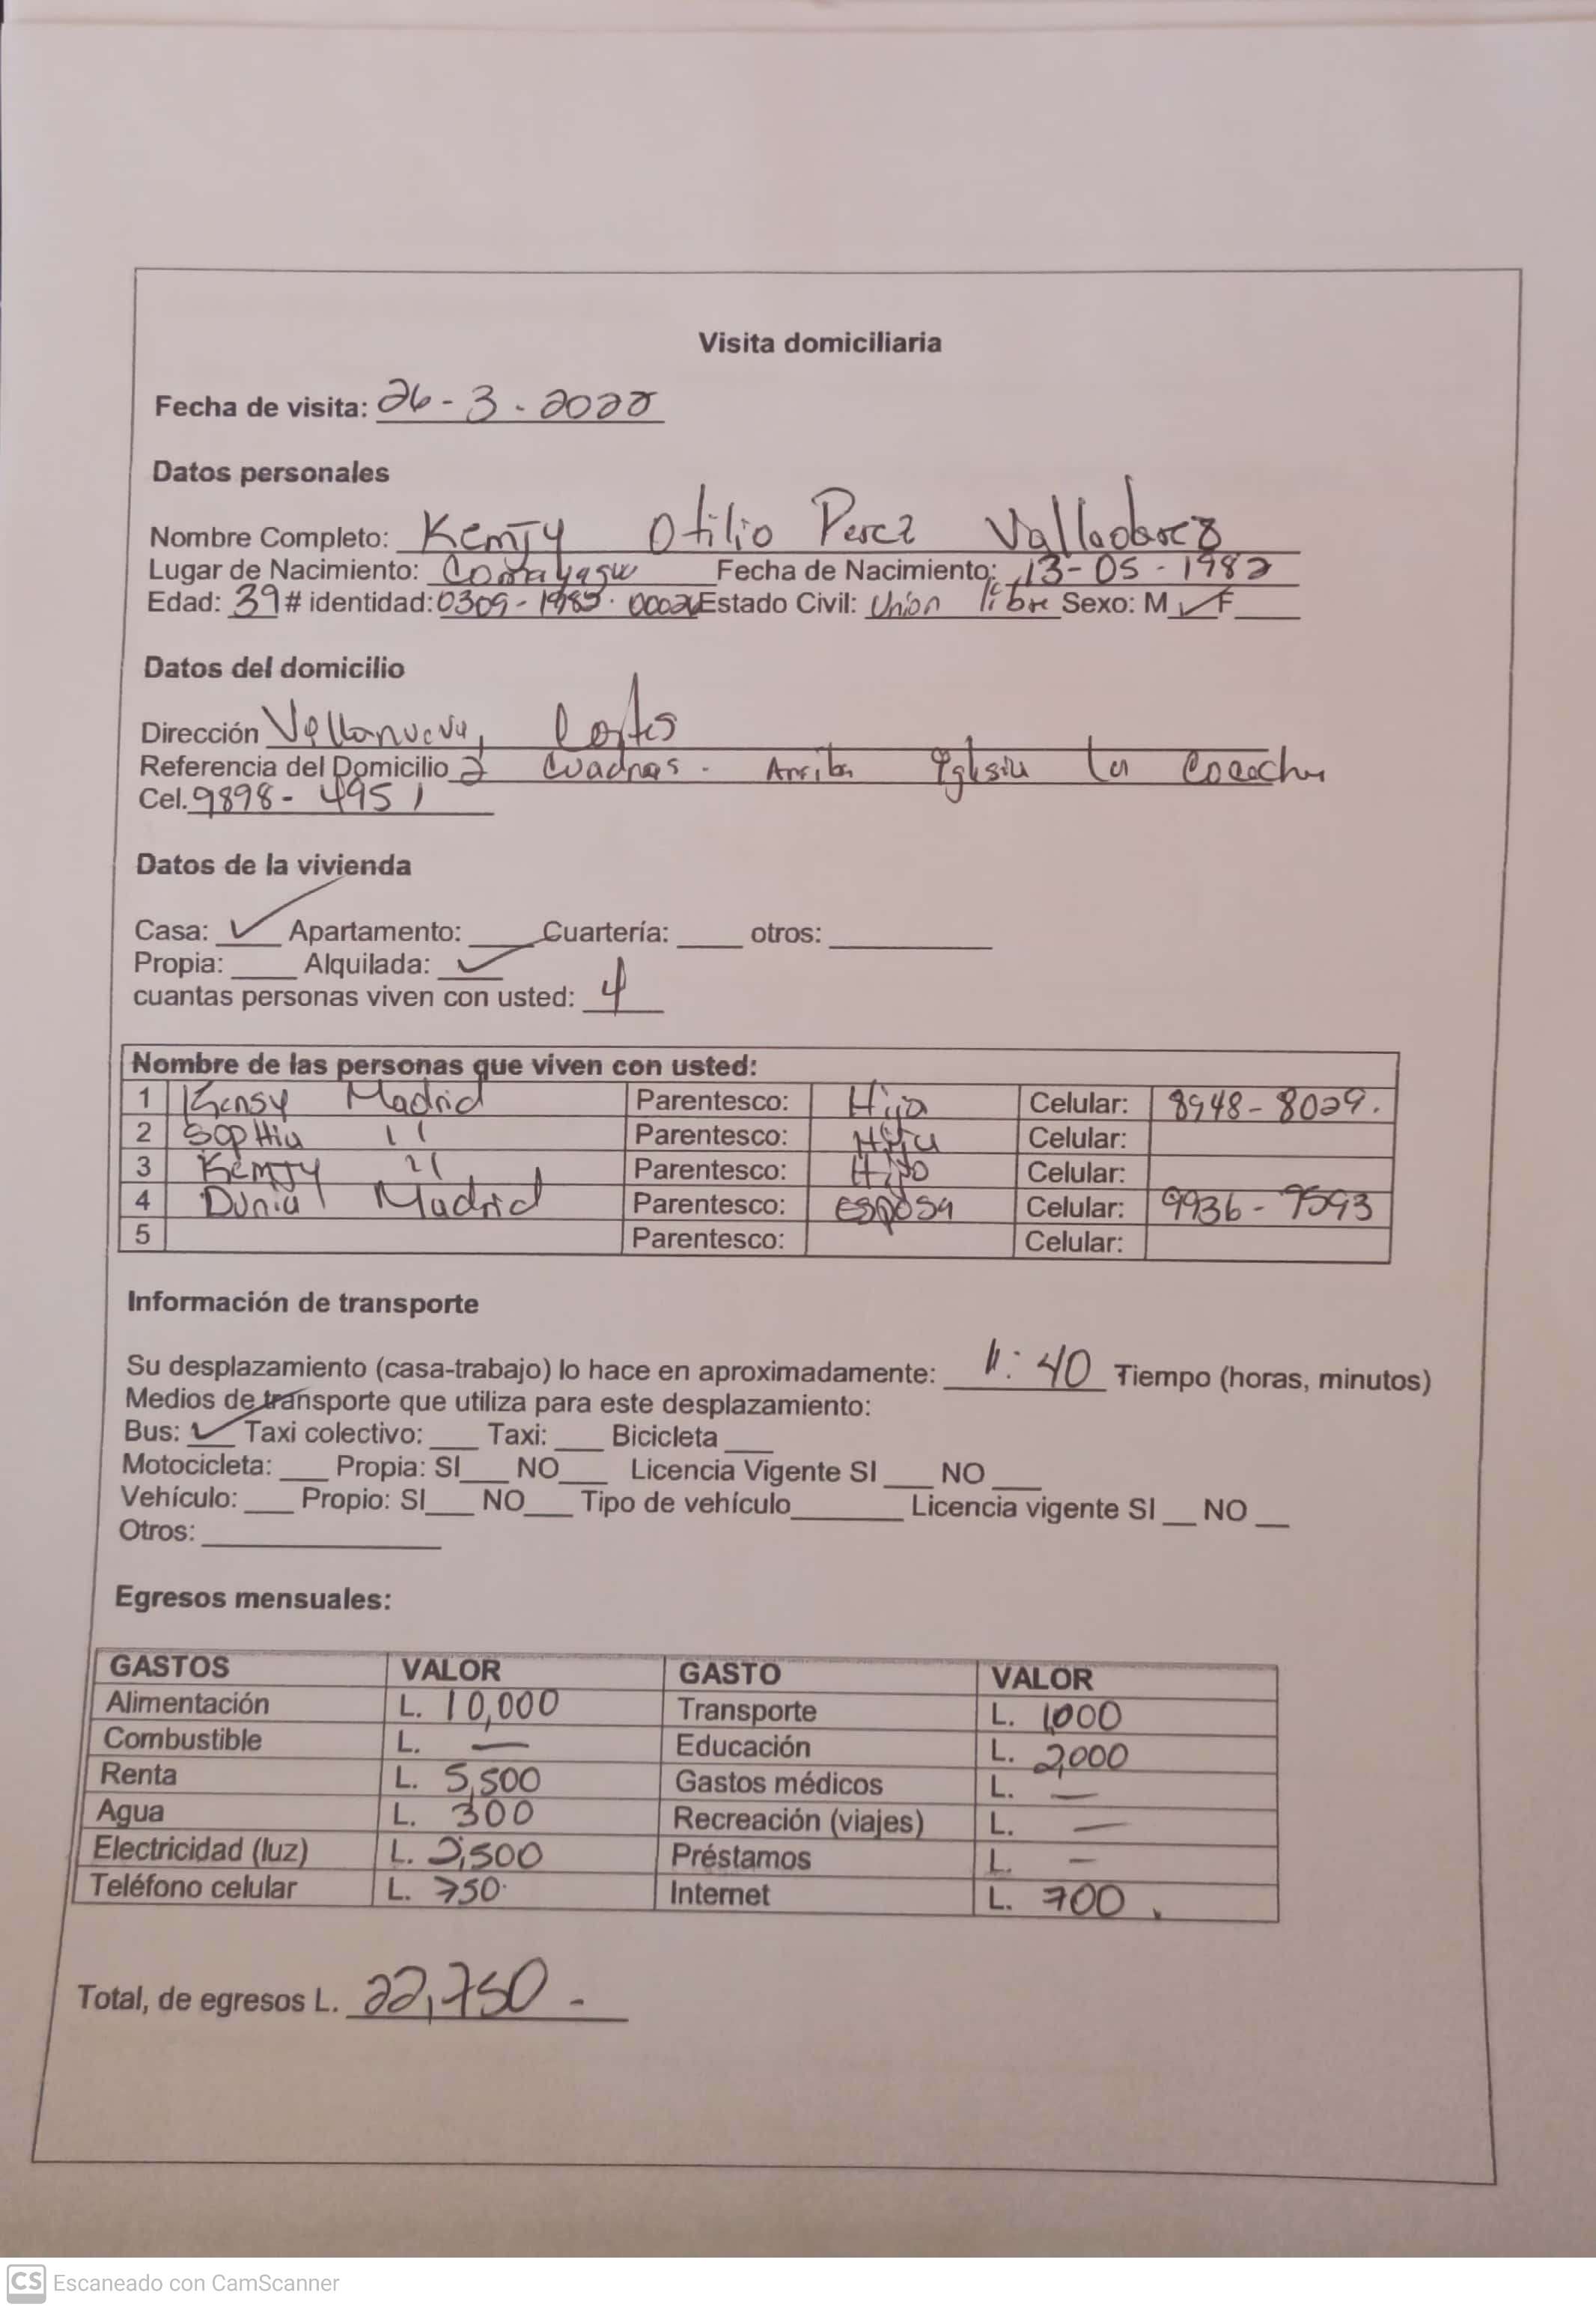 Visita domiciliaria
Fecha de visita: 26-3-2022
Datos personales
Nombre Completo: Kemjy Otilio Perez Valladarez
Lugar de Nacimiento: Comayagua Fecha de Nacimiento: 13-05-1982
Edad: 39 # identidad: 0309-1983-0002 Estado Civil: Union libre Sexo: M ✓ F
Datos del domicilio
Dirección Vellanueva, Cortes
Referencia del Domicilio 2 Cuadras. Arriba Yglesia La
Cel. 9898-4951
Datos de la vivienda
Casa: ✓ Apartamento: Cuartería: otros:
Propia: Alquilada: ✓
cuantas personas viven con usted: 4
Nombre de las personas que viven con usted:
1 Kensy Madrid Parentesco: Hija Celular: 8948-8029.
2 Sophia 11 Parentesco: Hija Celular:
3 Kemjy 11 Parentesco: Hijo Celular:
4 Dunia Madrid Parentesco: esposa Celular: 9936-9593
5 Parentesco: Celular:
Información de transporte
Su desplazamiento (casa-trabajo) lo hace en aproximadamente: 1:40 Tiempo (horas, minutos)
Medios de transporte que utiliza para este desplazamiento:
Bus: ✓ Taxi colectivo: Taxi: Bicicleta
Motocicleta: Propia: SI NO Licencia Vigente SI NO
Vehículo: Propio: SI NO Tipo de vehículo Licencia vigente SI NO
Otros:
Egresos mensuales:
GASTOS VALOR GASTO VALOR
Alimentación L. 10,000 Transporte L. 1,000
Combustible L. — Educación L. 2,000
Renta L. 5,500 Gastos médicos L. —
Agua L. 300 Recreación (viajes) L. —
Electricidad (luz) L. 2,500 Préstamos L. -
Teléfono celular L. 750 Internet L. 700.
Total, de egresos L. 22,750.-
CS Escaneado con CamScanner